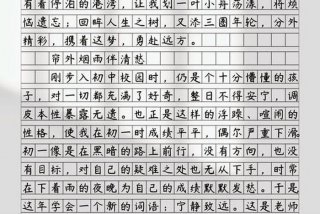 有着停泊的港湾，让我划一叶小舟荡漾，将烦
恼遗忘；回眸人生之树，又添三圈年轮，分外
精彩，携着这梦，勇赴远方。
帘外烟雨伴清愁
刚步入初中校园时，仍是个十分懵懂的孩
子，对一切都充满了好奇，整日不得安宁，调
皮本性暴露无遗。也正是这样的浮躁、喧闹的
性格，使我在初一时成绩平平，偶尔严重下滑
初一像是在黑暗的路上前行，没有方向，也没
有目标，对自己的疑难之处也无从下手，时常
在下着雨的夜晚为自己的成绩默默发愁。于是
这年学会一个新的词语：宁静致远。这是老师